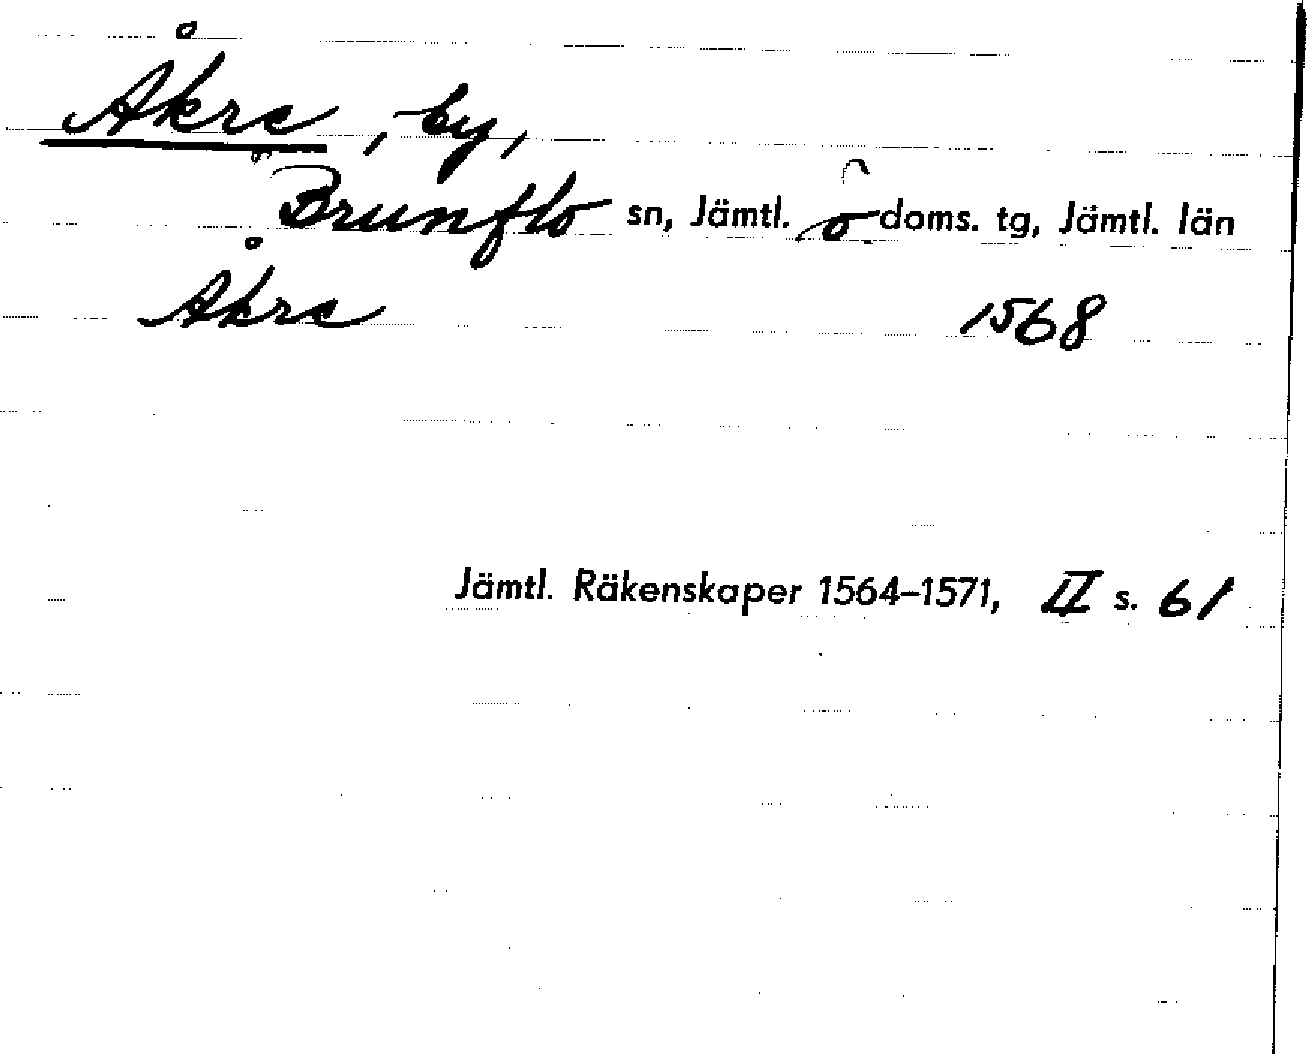 Åkre, by,
Brunflo sn, Jämtl. ö doms. tg, Jämtl. län
Åkre 1568
Jämtl. Räkenskaper 1564–1571, II s. 61